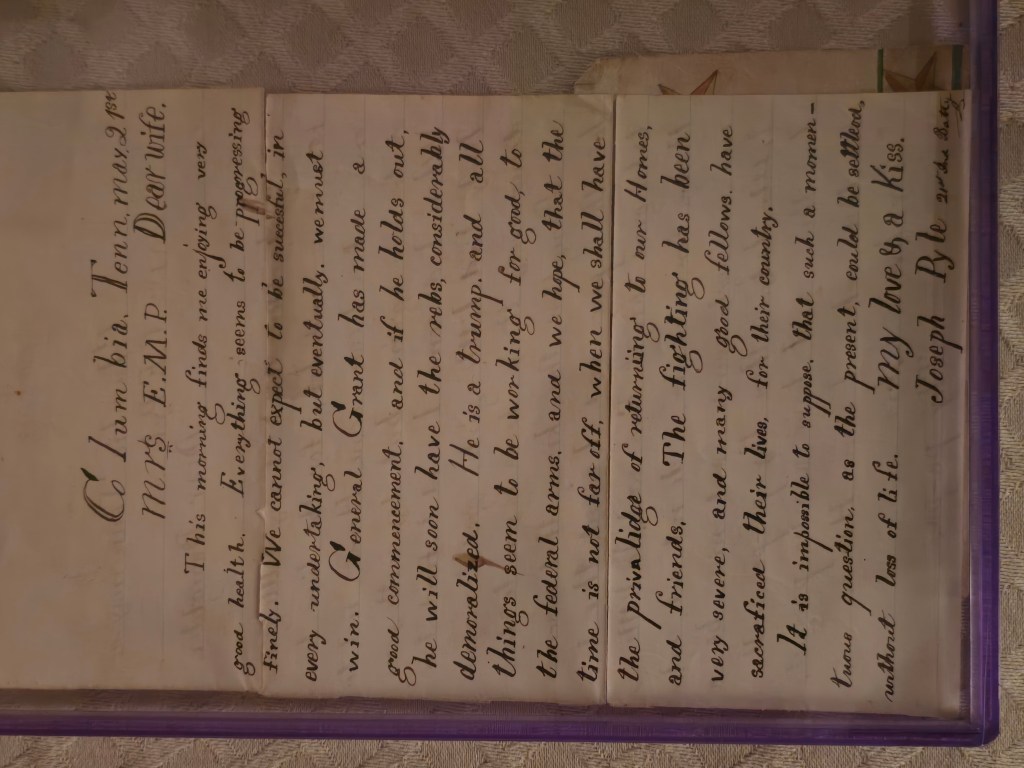 Columbia. Tenn. may, 21st
Mrs E.M.P. Dear wife.
This morning finds me enjoying very
good health. Everything seems to be progressing
fineley. We cannot expect to be sucessful, in
every undertaking, but eventually. we must
win. General Grant has made a
good commencement. and if he holds out,
he will soon have the rebs, considerably
demoralized. He is a trump. and all
things seem to be working for good, to
the federal arms. and we hope, that the
time is not far off. when we shall have
the privalidge of returning to our Homes,
and friends. The fighting has been
very severe, and many good fellows. have
sacraficed their lives, for their country.
It is impossible to suppose. that such a momen-
tuous question. as the present, could be settled,
without loss of life. My love &, a Kiss.
Joseph Pyle